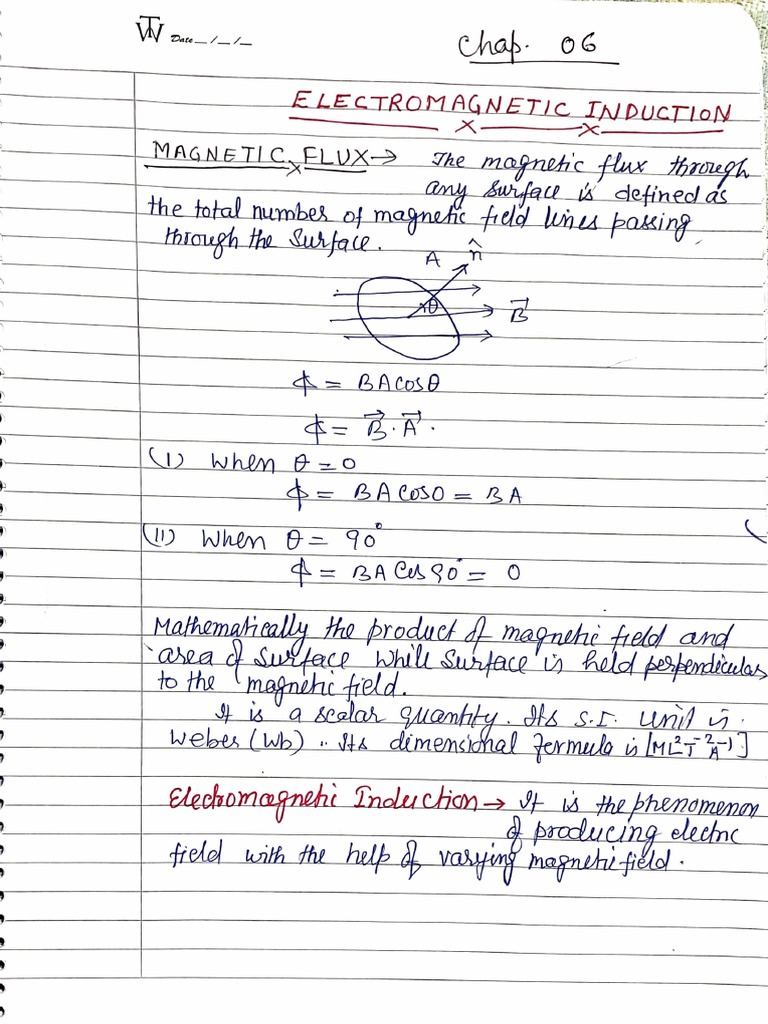 TW Date__/__/__
Chap. 06
ELECTROMAGNETIC INDUCTION
MAGNETIC FLUX → The magnetic flux through
any surface is defined as
the total number of magnetic field lines passing
through the surface.
A n̂
θ B⃗
ϕ = BA cosθ
ϕ = B⃗ . A⃗ .
(I) when θ = 0
ϕ = BA cos0 = BA
(II) when θ = 90°
ϕ = BA Cos 90° = 0
Mathematically the product of magnetic field and
area of surface while surface is held perpendicular
to the magnetic field.
It is a scalar quantity. Its S.I. unit is
weber (Wb) .. Its dimensional formula is [ML²T⁻²A⁻¹]
Electromagnetic Induction → It is the phenomenon
of producing electric
field with the help of varying magnetic field.